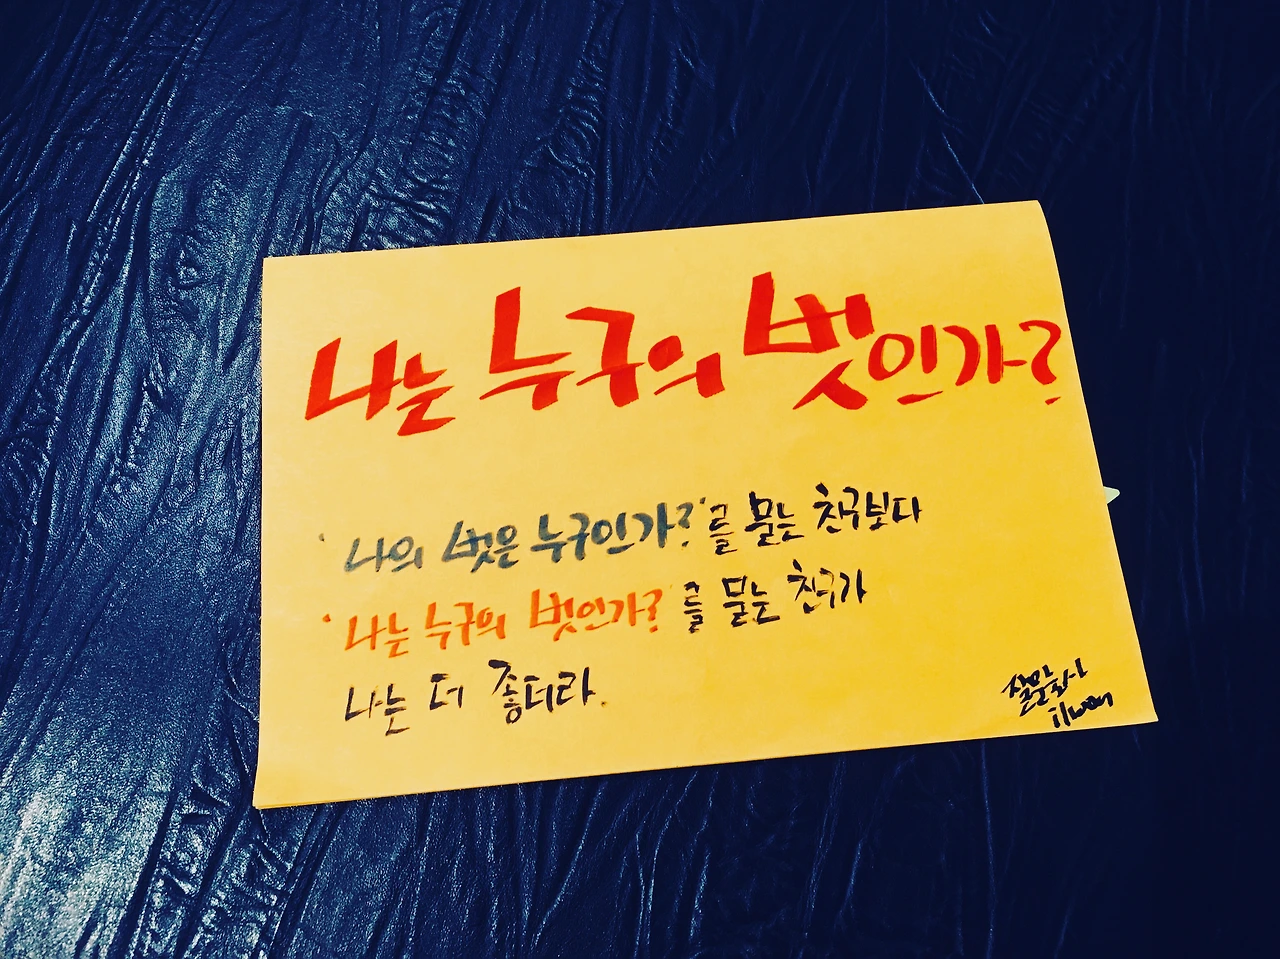 나는 누구의 벗인가?
'나의 벗은 누구인가?'를 묻는 친구보다
'나는 누구의 벗인가?'를 묻는 친구가
나는 더 좋더라.
질문술사
ilwon